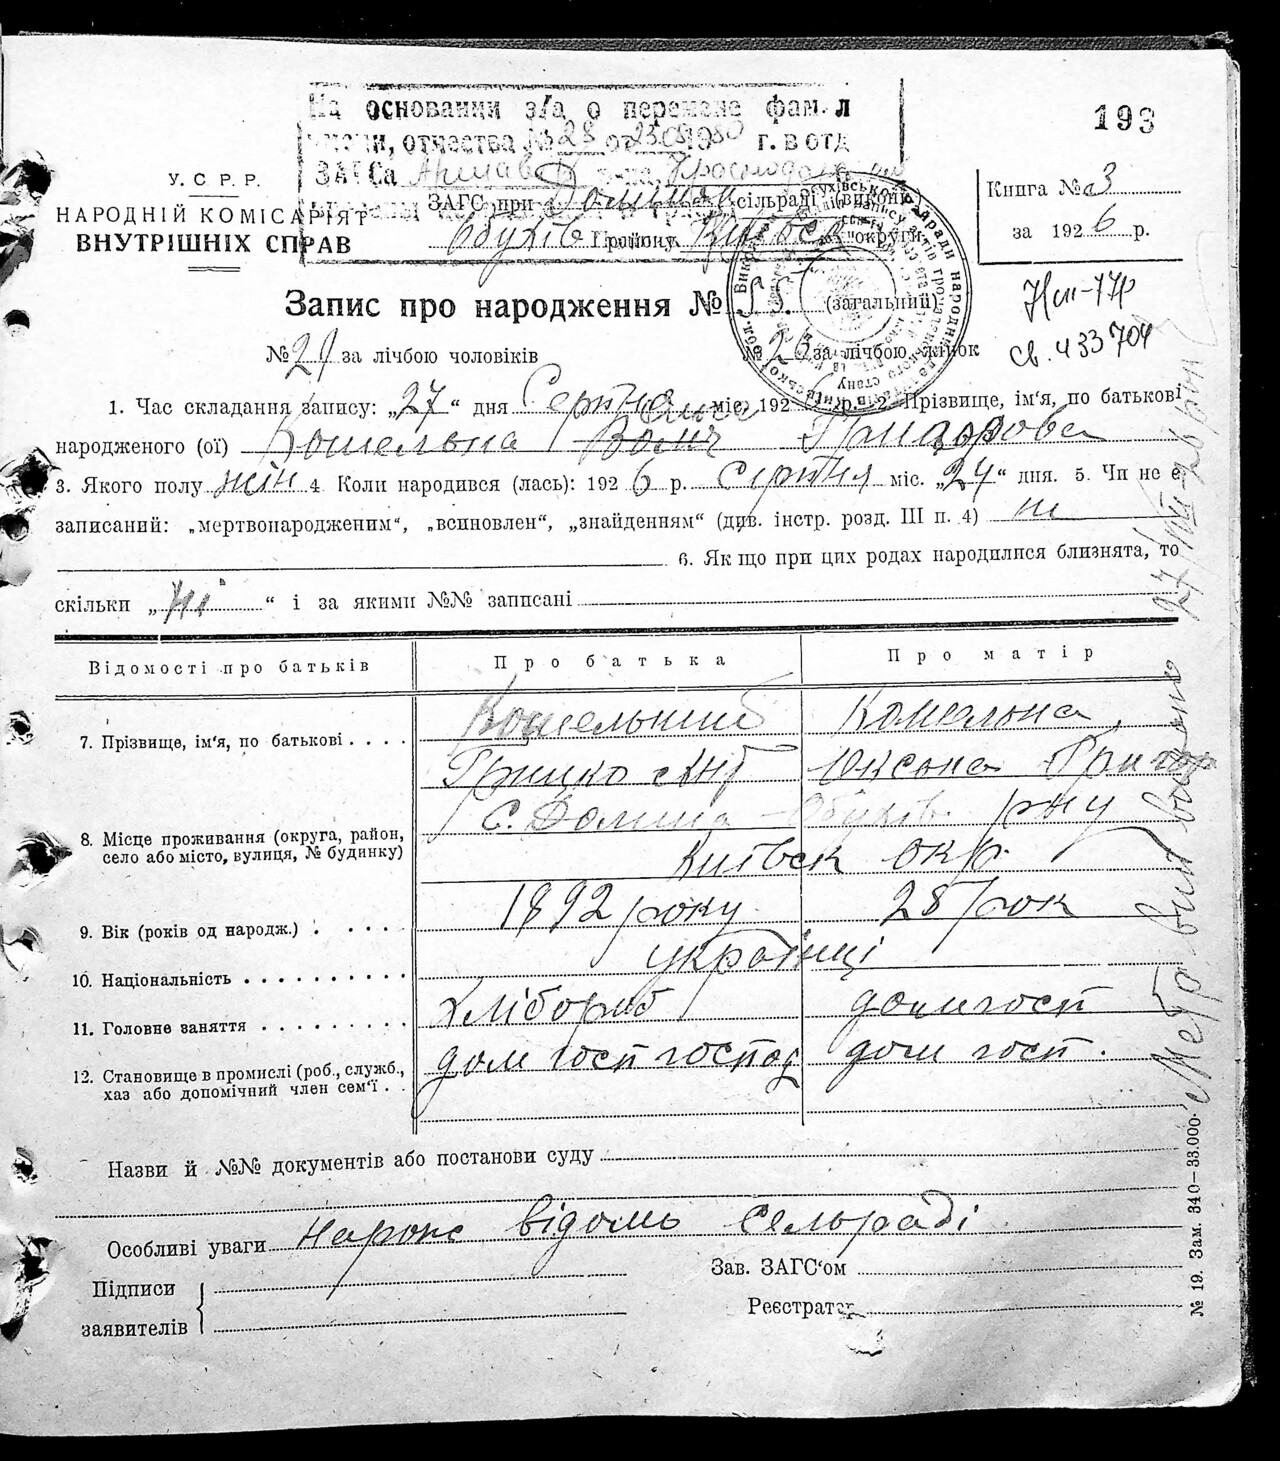 На основании з/а о перемене фам.л
отчества № 28 от 23.08.1980 г. в отд
ЗАГСа
193
У. С. Р. Р.
НАРОДНІЙ КОМІСАРІЯТ
ВНУТРІШНІХ СПРАВ
ЗАГС при Долинян сільраді (викон
Обухів району Київськ округи
Книга № 3
за 1926 р.
Запис про народження № 55. (загальний)
св. 433704
№ 21 за лічбою чоловіків
№ 26 за лічбою жінок
1. Час складання запису: „27“ дня Серпня міс. 1926 р. 2. Прізвище, ім'я, по батькові
народженого (ої) Кошельна
3. Якого полу жін 4. Коли народився (лась): 1926 р. серпня міс. „24“ дня. 5. Чи не є
записаний: „мертвонародженим“, „всиновлен“, „знайденням“ (див. інстр. розд. III п. 4) ні
6. Як що при цих родах народилися близнята, то
скільки „ні“ і за якими №№ записані
Відомості про батьків
Про батька
Про матір
7. Прізвище, ім'я, по батькові . . . .
Кошельний
Кошельна
Грицько
Юксена Григор
8. Місце проживання (округа, район,
село або місто, вулиця, № будинку)
С. Долина Обухів. р-ну
Київськ окр.
9. Вік (років од народж.) . . . . .
1892 року
28 рок
10. Національність . . . . . . . . .
українці
11. Головне заняття . . . . . . . . .
хлібороб
домгосп
12. Становище в промислі (роб., служб.,
хаз або допомічний член сем'ї . .
дом госп господ
дом госп.
Назви й №№ документів або постанови суду
Особливі уваги відомь Сельраді
Підписи
заявителів
Зав. ЗАГС'ом
Реєстратор
№ 19. Зам. 340—33.000.
27/VIII-26 року